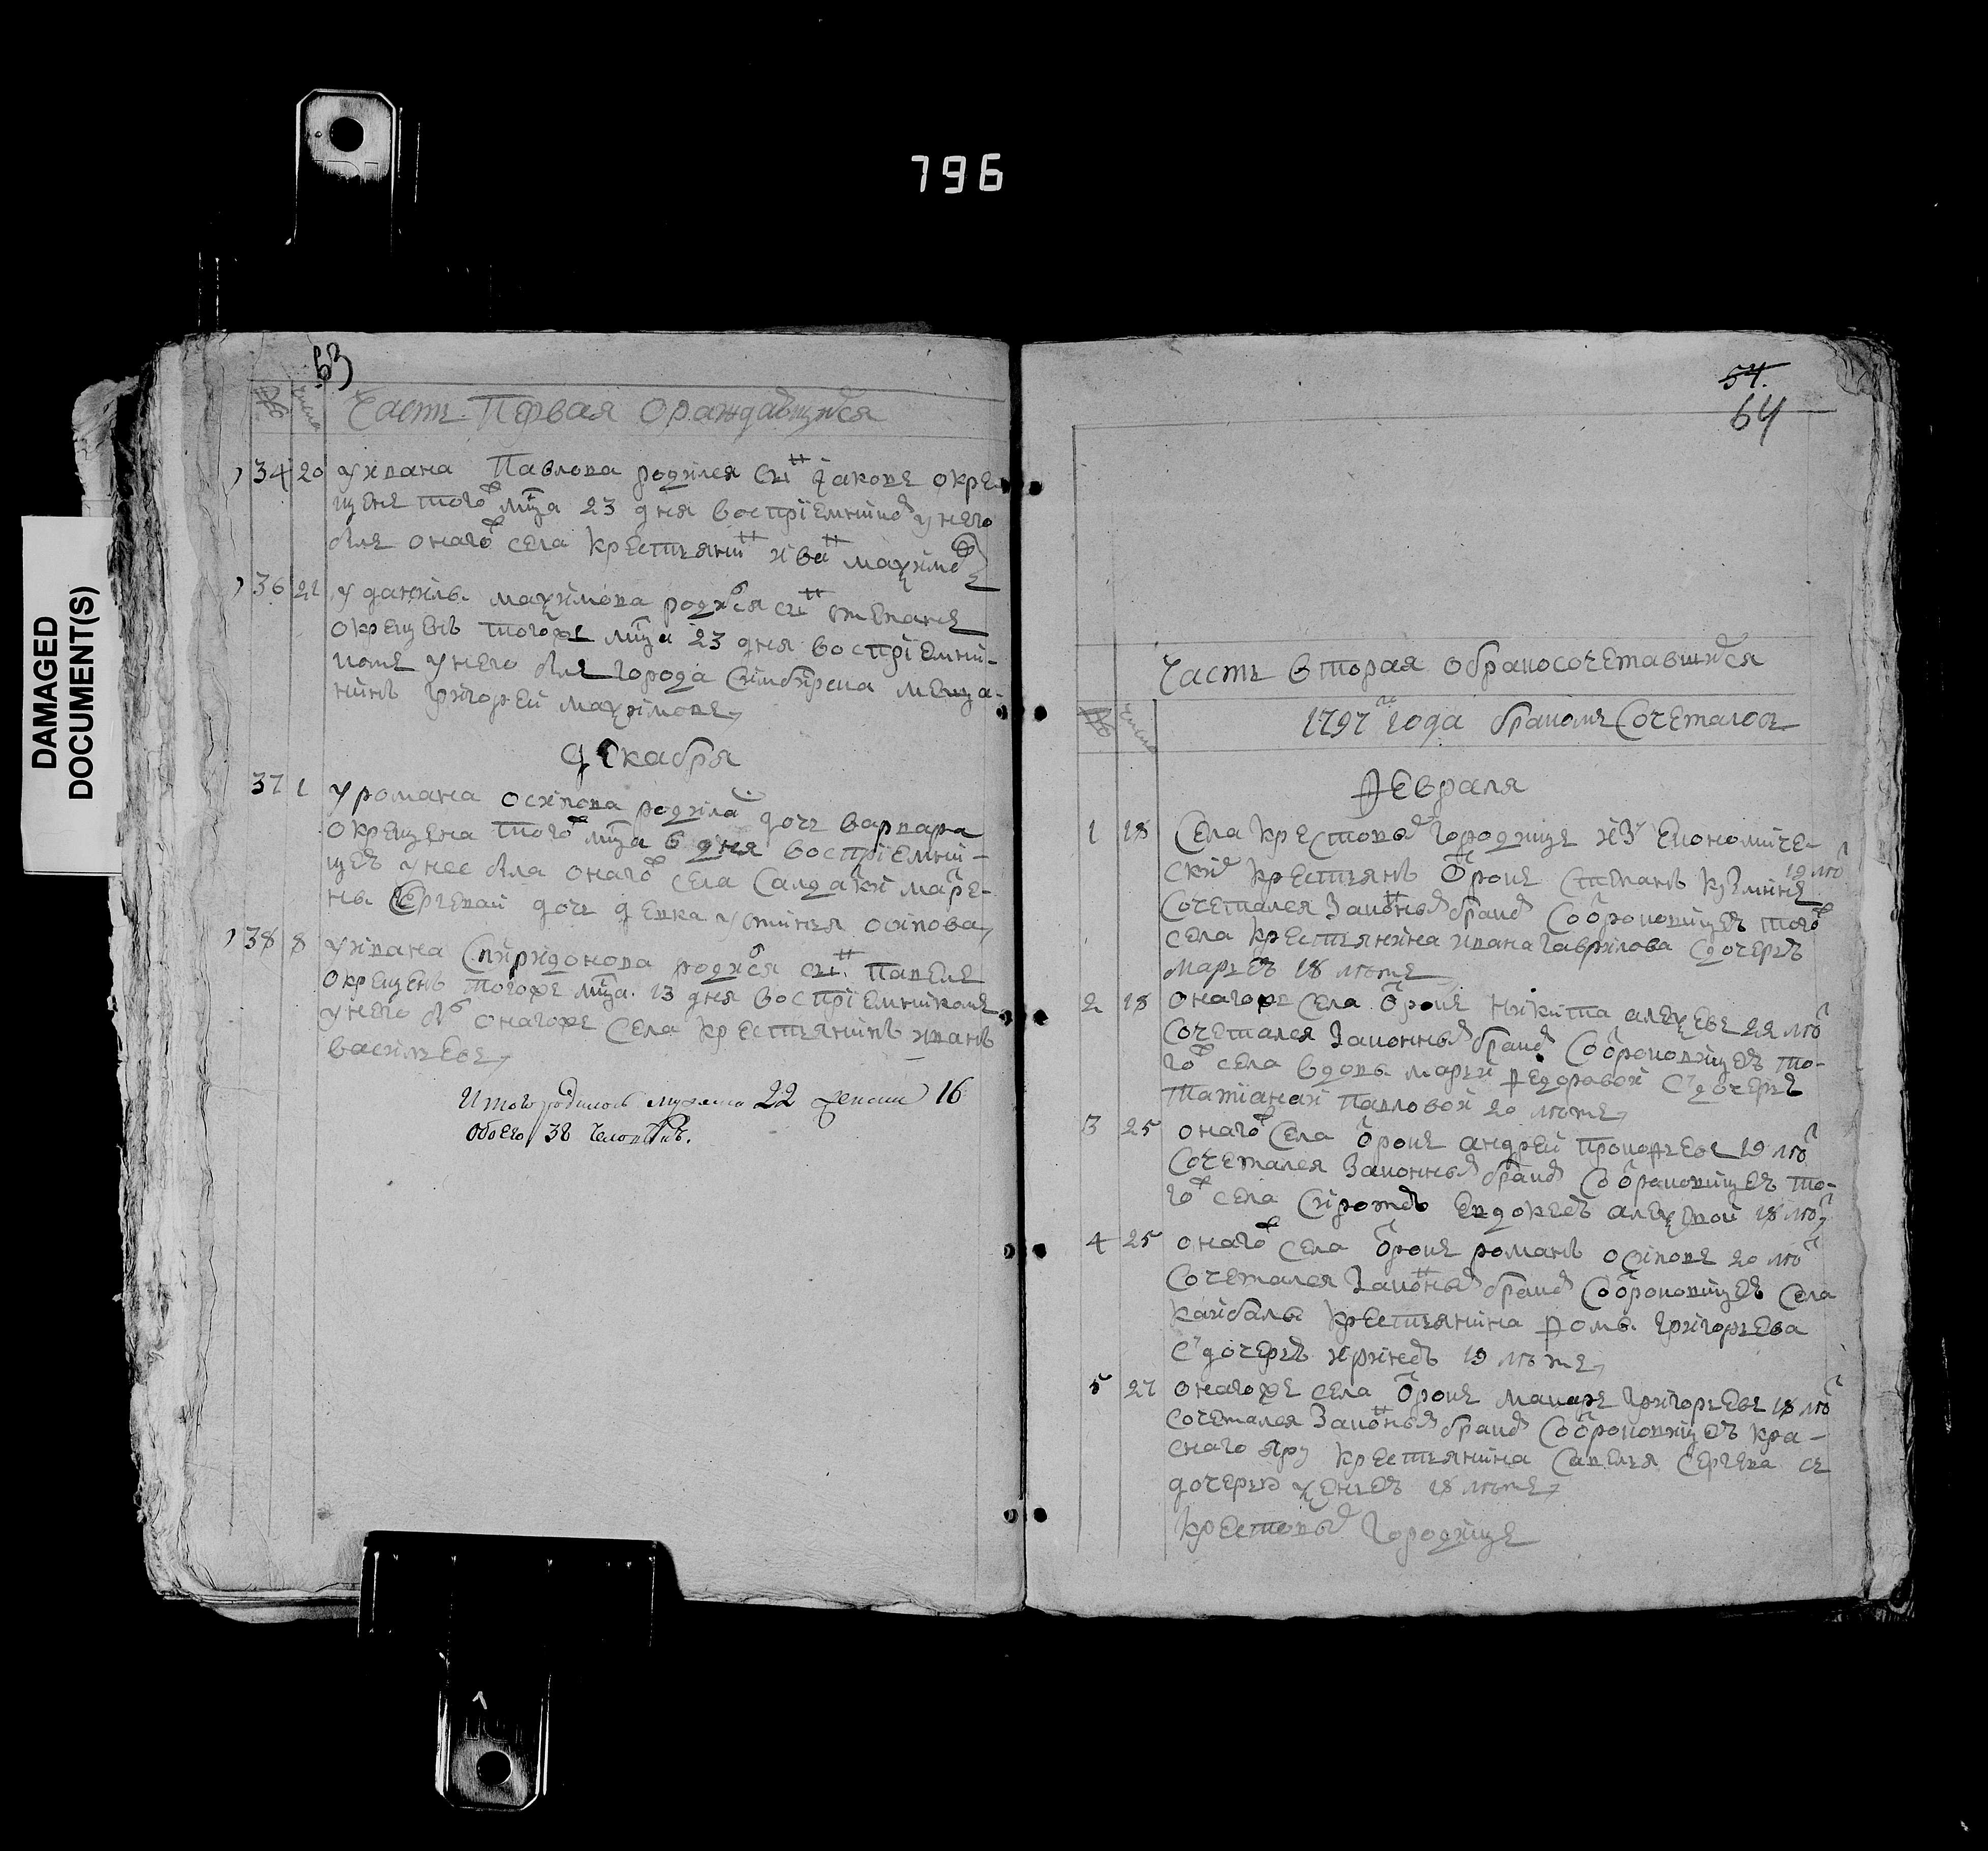 796
DAMAGED
DOCUMENT(S)
53
№ число
Часть Первая Ораждавшихся
34 20 У ивана Павлова родился снъ Яковъ окре-
щенъ тогож мца 23 дня воспріемникъ у него
былъ онагож села крестьянинъ иванъ махимов
36 21 У данилы махимова родился снъ степанъ
окрещенъ тогоже мца 23 дня воспріемни-
комъ у него былъ города Симбирска меща-
нинъ григорей махимовъ
декабря
37 1 У романа осипова родила дочь варвара
окрещена тогож мца 6 дня воспріемни-
цею у нее была онагож села салдатки марь-
ны Сергевай дочь девка устинья осипова
38 8 У ивана Спиридонова родился снъ павелъ
окрещенъ тогоже мца 13 дня воспріемникомъ
у него былъ онагоже села крестьянинъ иванъ
васильевъ
Итого родилось мужеска 22 женска 16
Обоего 38 человѣкъ.
54.
64
Часть вторая обракосочетавшихся
№ число
1797го года бракомъ Сочеталось
Февраля
1 18 Села крестовых городищ из экономиче-
ских крестьянъ отрокъ степанъ кузминъ 19 лѣт
Сочетался законнымъ бракомъ Сотроковицею тогож
села крестьянина ивана гаврилова Сдочерью
марьею 18 лѣтъ
2 18 онагоже села отрокъ никита алеѯеевъ 22 лѣт
Сочетался законнымъ бракомъ Сотроковицею то-
гож села вдовы марьи федоравой Сдочерью
татіаной павловой 20 лѣтъ
3 25 онагож села отрокъ андрей прокофьевъ 19 лѣт
Сочетался законнымъ бракомъ Сотроковицею то-
гож села Сиротою евдокеею алеѯевой 18 лѣт
4 25 онагож села отрокъ романъ осиповъ 20 лѣт
Сочетался законнымъ бракомъ Сотроковицею села
кайбалы крестьянина фомы григорьева
Сдочерью ириною 19 лѣтъ
5 27 онагоже села отрокъ макаръ григорьевъ 18 лѣт
сочетался законнымъ бракомъ Сотроковицею кра-
снаго яру крестьянина Савелья сергева съ
дочерью ѯеньею 18 лѣтъ
крестовых городищъ